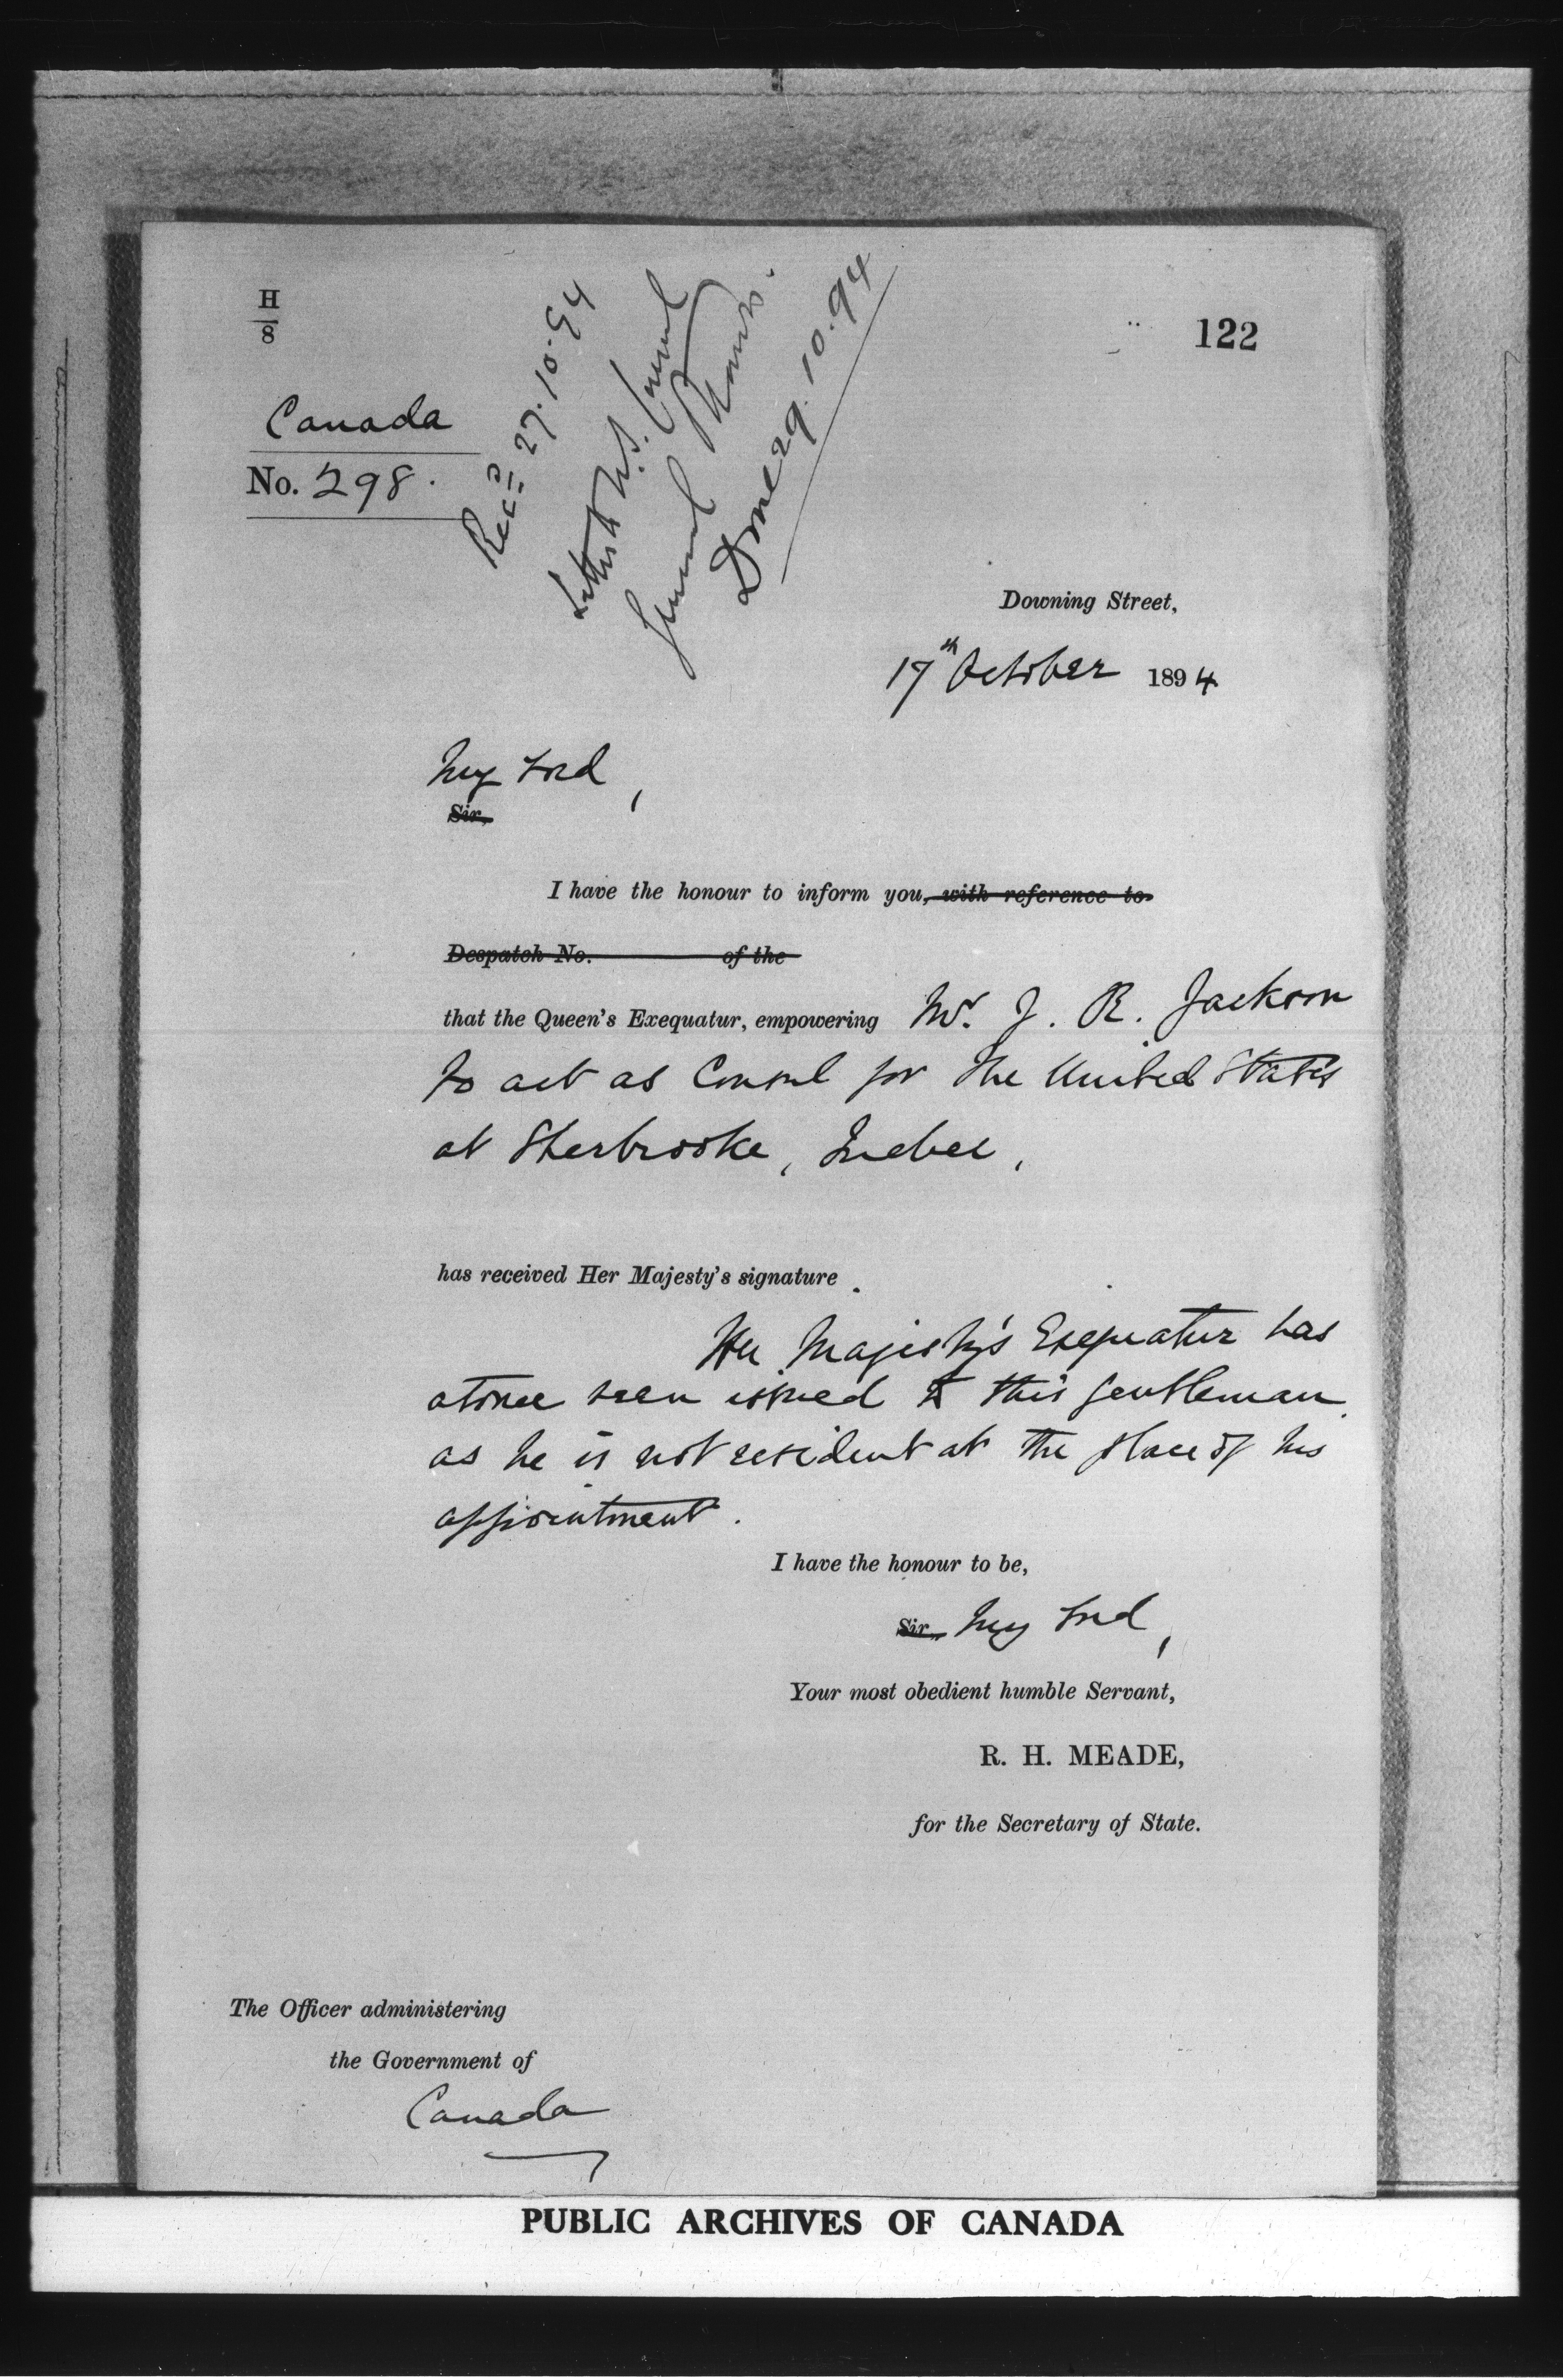 H
8
122
Canada
No. 298.
Recd 27.10.94
Letter to U.S. Consul
General
Done 29.10.94
Downing Street,
17th October 1894
My Lord,
Sir,
I have the honour to inform you, with reference to
Despatch No. of the
that the Queen's Exequatur, empowering Mr. J. R. Jackson
to act as Consul for the United States
at Sherbrooke, Quebec,
has received Her Majesty's signature.
Her Majesty's Exequatur has
at once been issued to this gentleman
as he is not resident at the place of his
appointment.
I have the honour to be,
Sir, My Lord,
Your most obedient humble Servant,
R. H. MEADE,
for the Secretary of State.
The Officer administering
the Government of
Canada
PUBLIC ARCHIVES OF CANADA